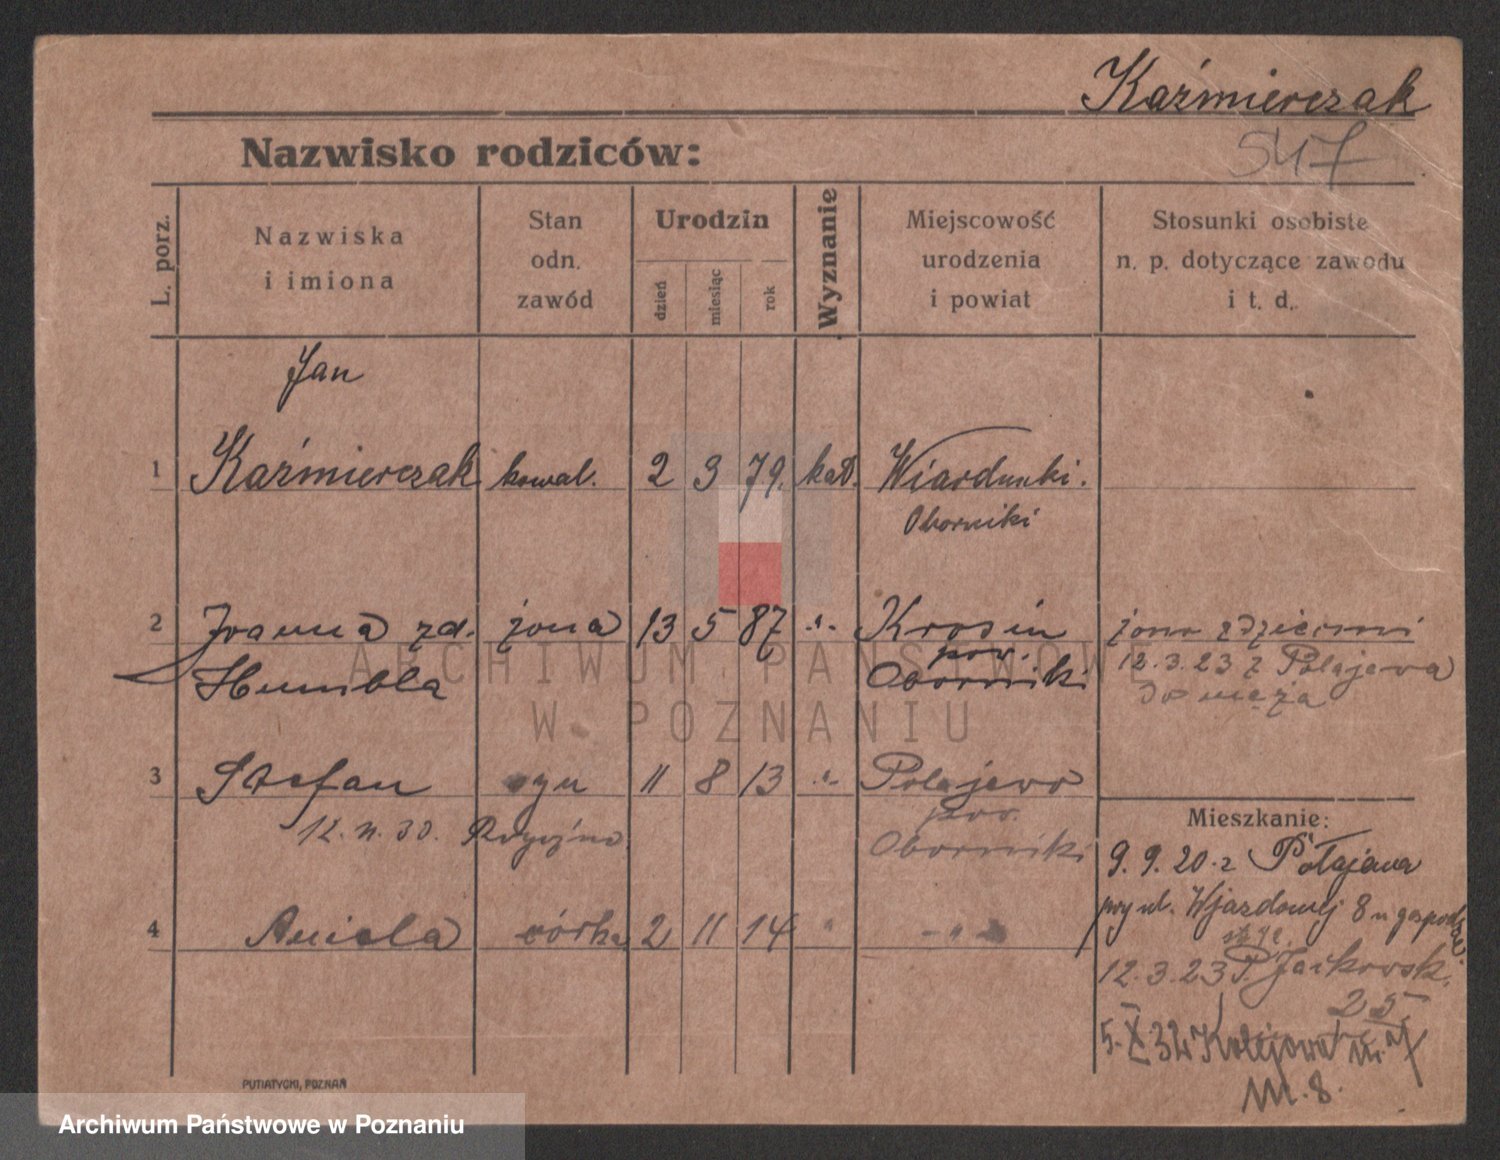 Kaźmierczak
547
Nazwisko rodziców:
L. porz.
Nazwiska
i imiona
Stan
odn.
zawód
Urodzin
dzień
miesiąc
rok
Wyznanie
Miejscowość
urodzenia
i powiat
Stosunki osobiste
n. p. dotyczące zawodu
i t. d.
Jan
1 Kaźmierczak kowal. 2 3 79. kat. Wiardunki.
Oborniki
2 Joanna zd. żona 13 5 87 -„- Krosin żona z dziećmi
Humbla pow. Oborniki 12.3.23 z Połajewa
do męża
3 Stefan syn 11 8 13 -„- Połajewo
12.11.30. pow.
Oborniki
4 Aniela córka 2 11 14 „ -„-
Mieszkanie:
9.9.20 z Połajewa
przy ul. Wjazdowej 8 u gospodz.
12.3.23 P. Jackowsk.
25
5.X.32 Kolejowa
m. 8.
PUTIATYCKI, POZNAŃ
ARCHIWUM PAŃSTWOWE
W POZNANIU
Archiwum Państwowe w Poznaniu